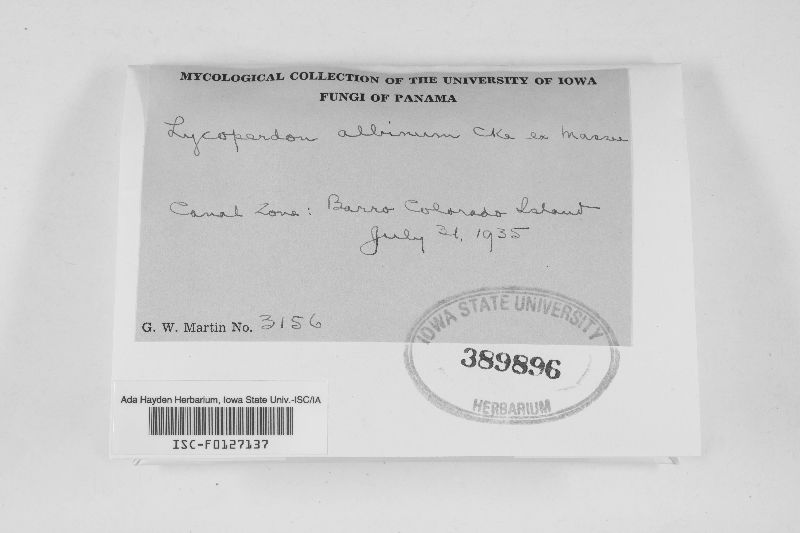 MYCOLOGICAL COLLECTION OF THE UNIVERSITY OF IOWA
FUNGI OF PANAMA
Lycoperdon albinum Cke ex Massee
Canal Zone: Barro Colorado Island
July 31, 1935
G. W. Martin No. 3156
IOWA STATE UNIVERSITY
389896
HERBARIUM
Ada Hayden Herbarium, Iowa State Univ.-ISC/IA
ISC-F0127137